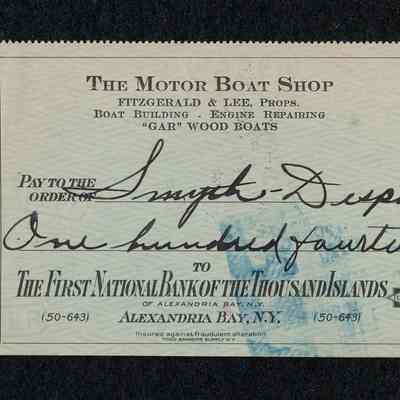 THE MOTOR BOAT SHOP
FITZGERALD & LEE, PROPS.
BOAT BUILDING - ENGINE REPAIRING
"GAR" WOOD BOATS
PAY TO THE
ORDER OF Smyth-Desp
One hundred fourte
TO
THE FIRST NATIONAL BANK OF THE THOUSAND ISLANDS
OF ALEXANDRIA BAY, N.Y.
(50-643) ALEXANDRIA BAY, N.Y. (50-643)
Insured against fraudulent alteration
TODD BANKERS SUPPLY N.Y.